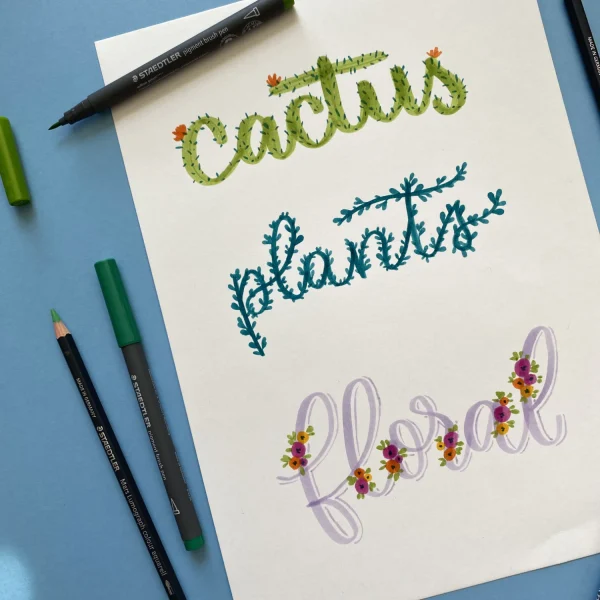 STAEDTLER pigment brush pen
cactus
plants
floral
STAEDTLER pigment brush pen
MADE IN GERMANY STAEDTLER Mars Lumograph colour aquarell
MADE IN GERMANY